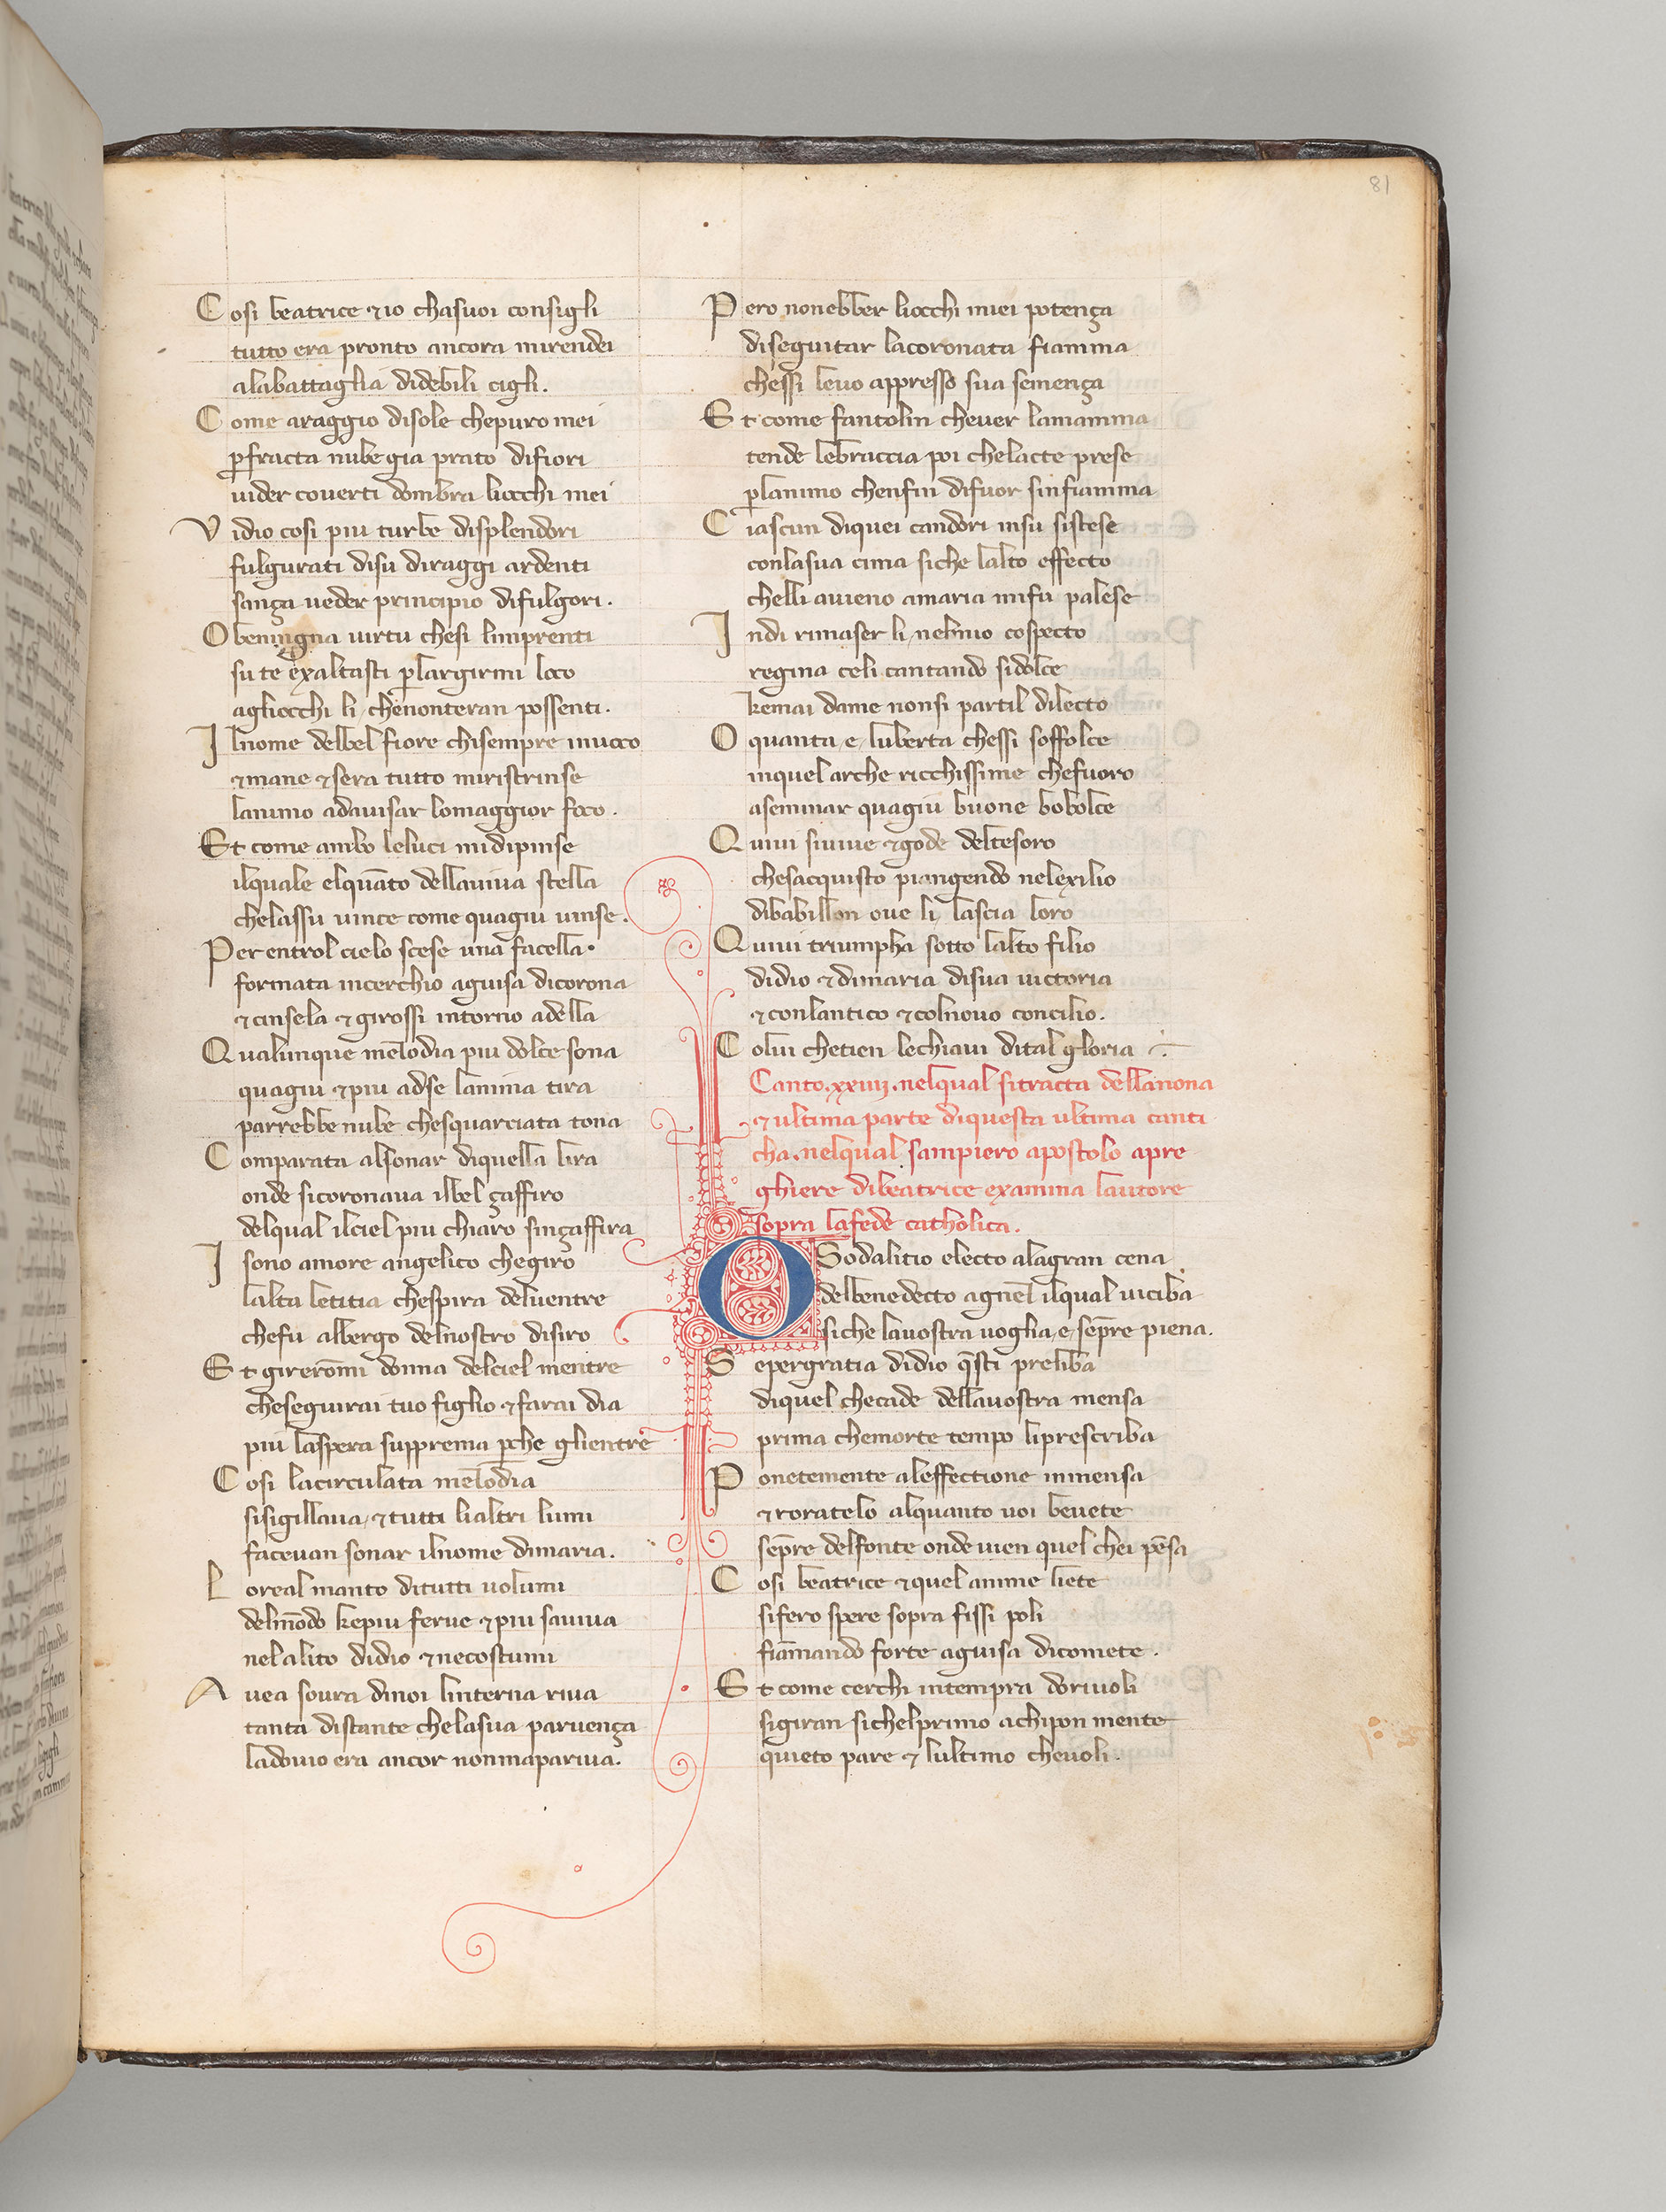 81
Cosi beatrice ⁊ io chasuoi consigli
tutto era pronto ancora mirendei
alabattaglia didebili cigli.
Come araggio disole chepuro mei
ꝑfracta nube gia prato difiori
uider couerti dombra liocchi mei
Vidio cosi piu turbe displendori
fulgurati disu diraggi ardenti
sança ueder principio difulgori.
O beningna uirtu chesi limprenti
su te exaltasti ꝑlargirmi loco
agliocchi li chenonteran possenti.
Ilnome delbel fiore chisempre inuoco
⁊mane ⁊sera tutto miristrinse
lanimo adauisar lomaggior foco.
Et come ambo leluci midipinse
ilquale elquāto dellauiua stella
chelassu uince come quagiu uinse.
Per entrol cielo scese una facella.
formata incerchio aguisa dicorona
⁊cinsela ⁊ girossi intorno adella
Qualunque melodia piu dolce sona
quagiu ⁊piu adse lanima tira
parrebbe nube chesquarciata tona
Comparata alsonar diquella lira
onde sicoronaua ilbel çaffiro
delqual ilciel piu chiaro sinçaffira
I sono amore angelico chegiro
lalta letitia chespira deluentre
chefu albergo delnostro disiro
Et girerōmi donna delciel mentre
cheseguirai tuo figlio ⁊farai dia
piu laspera supprema ꝑche glientre
Cosi lacirculata melodia
sisigillaua, ⁊tutti lialtri lumi
faceuan sonar ilnome dimaria.
Loreal manto ditutti uolumi
delmōdo kepiu ferue ⁊piu sauiua
nelalito didio ⁊necostumi
Auea soura dinoi linterna riua
tanta distante chelasua paruença
ladouio era ancor nonmapariua.
Pero nonebber liocchi miei potença
diseguitar lacoronata fiamma
chessi leuo appresso sua semença
Et come fantolin cheuer lamamma
tende lebraccia poi chelacte prese
ꝑlanimo chenfin difuor sinfiamma
Ciascun diquei candori insu sistese
conlasua cima siche lalto effecto
chelli auieno amaria mifu palese
Indi rimaser li nelmio cospecto
regina celi cantando sidolce
kemai dame nonsi partil dilecto
O quanta, e, luberta chessi soffolce
inquel arche ricchissime chefuoro
aseminar quagiu buone bobolce
Quiui siuiue ⁊gode deltesoro
chesacquisto piangendo nelexilio
dibabillon oue li lascia loro
Quiui triumpha sotto lalto filio
didio ⁊dimaria disua uictoria
⁊conlantico ⁊colnouo concilio.
Colui chetien lechiaui dital gloria
Canto.xxiiij.nelqual sitracta dellanona
⁊ultima parte diquesta ultima canti
cha.nelqual sampiero apostolo apre
ghiere dibeatrice examina lautore
sopra lafede catholica.
O Sodalitio electo alagran cena
delbenedecto agnel ilqual uiciba
siche lauostra uoglia, e, sēpre piena.
Sepergratia didio q̄sti preliba
diquel checade dellauostra mensa
prima chemorte tempo liprescriba
Ponetemente aleffectione inmensa
⁊roratelo alquanto uoi beuete
sēpre delfonte ondeuien quel chei pēsa
Cosi beatrice ⁊quel anime liete
sifero spere sopra fissi poli
fiāmando forte aguisa dicomete.
Et come cerchi intempra doriuoli
sigiran sichelprimo achipon mente
quieto pare ⁊ lultimo cheuoli.